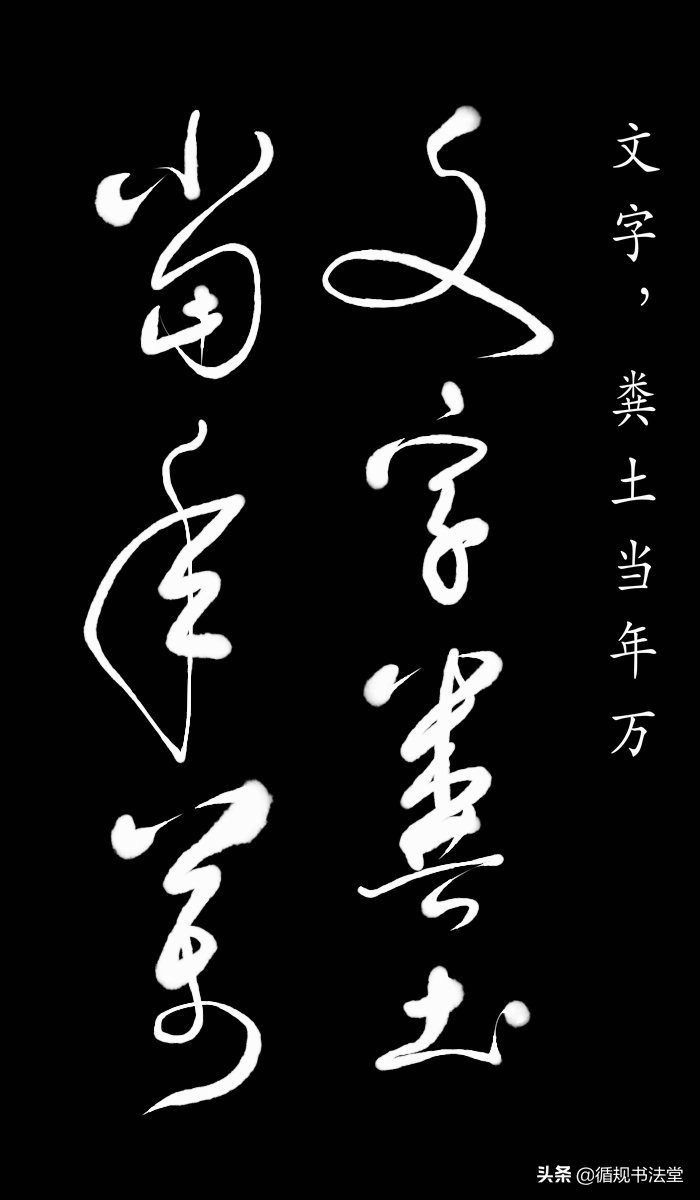 文字，粪土当年万
文字粪土
當年萬
头条 @循规书法堂